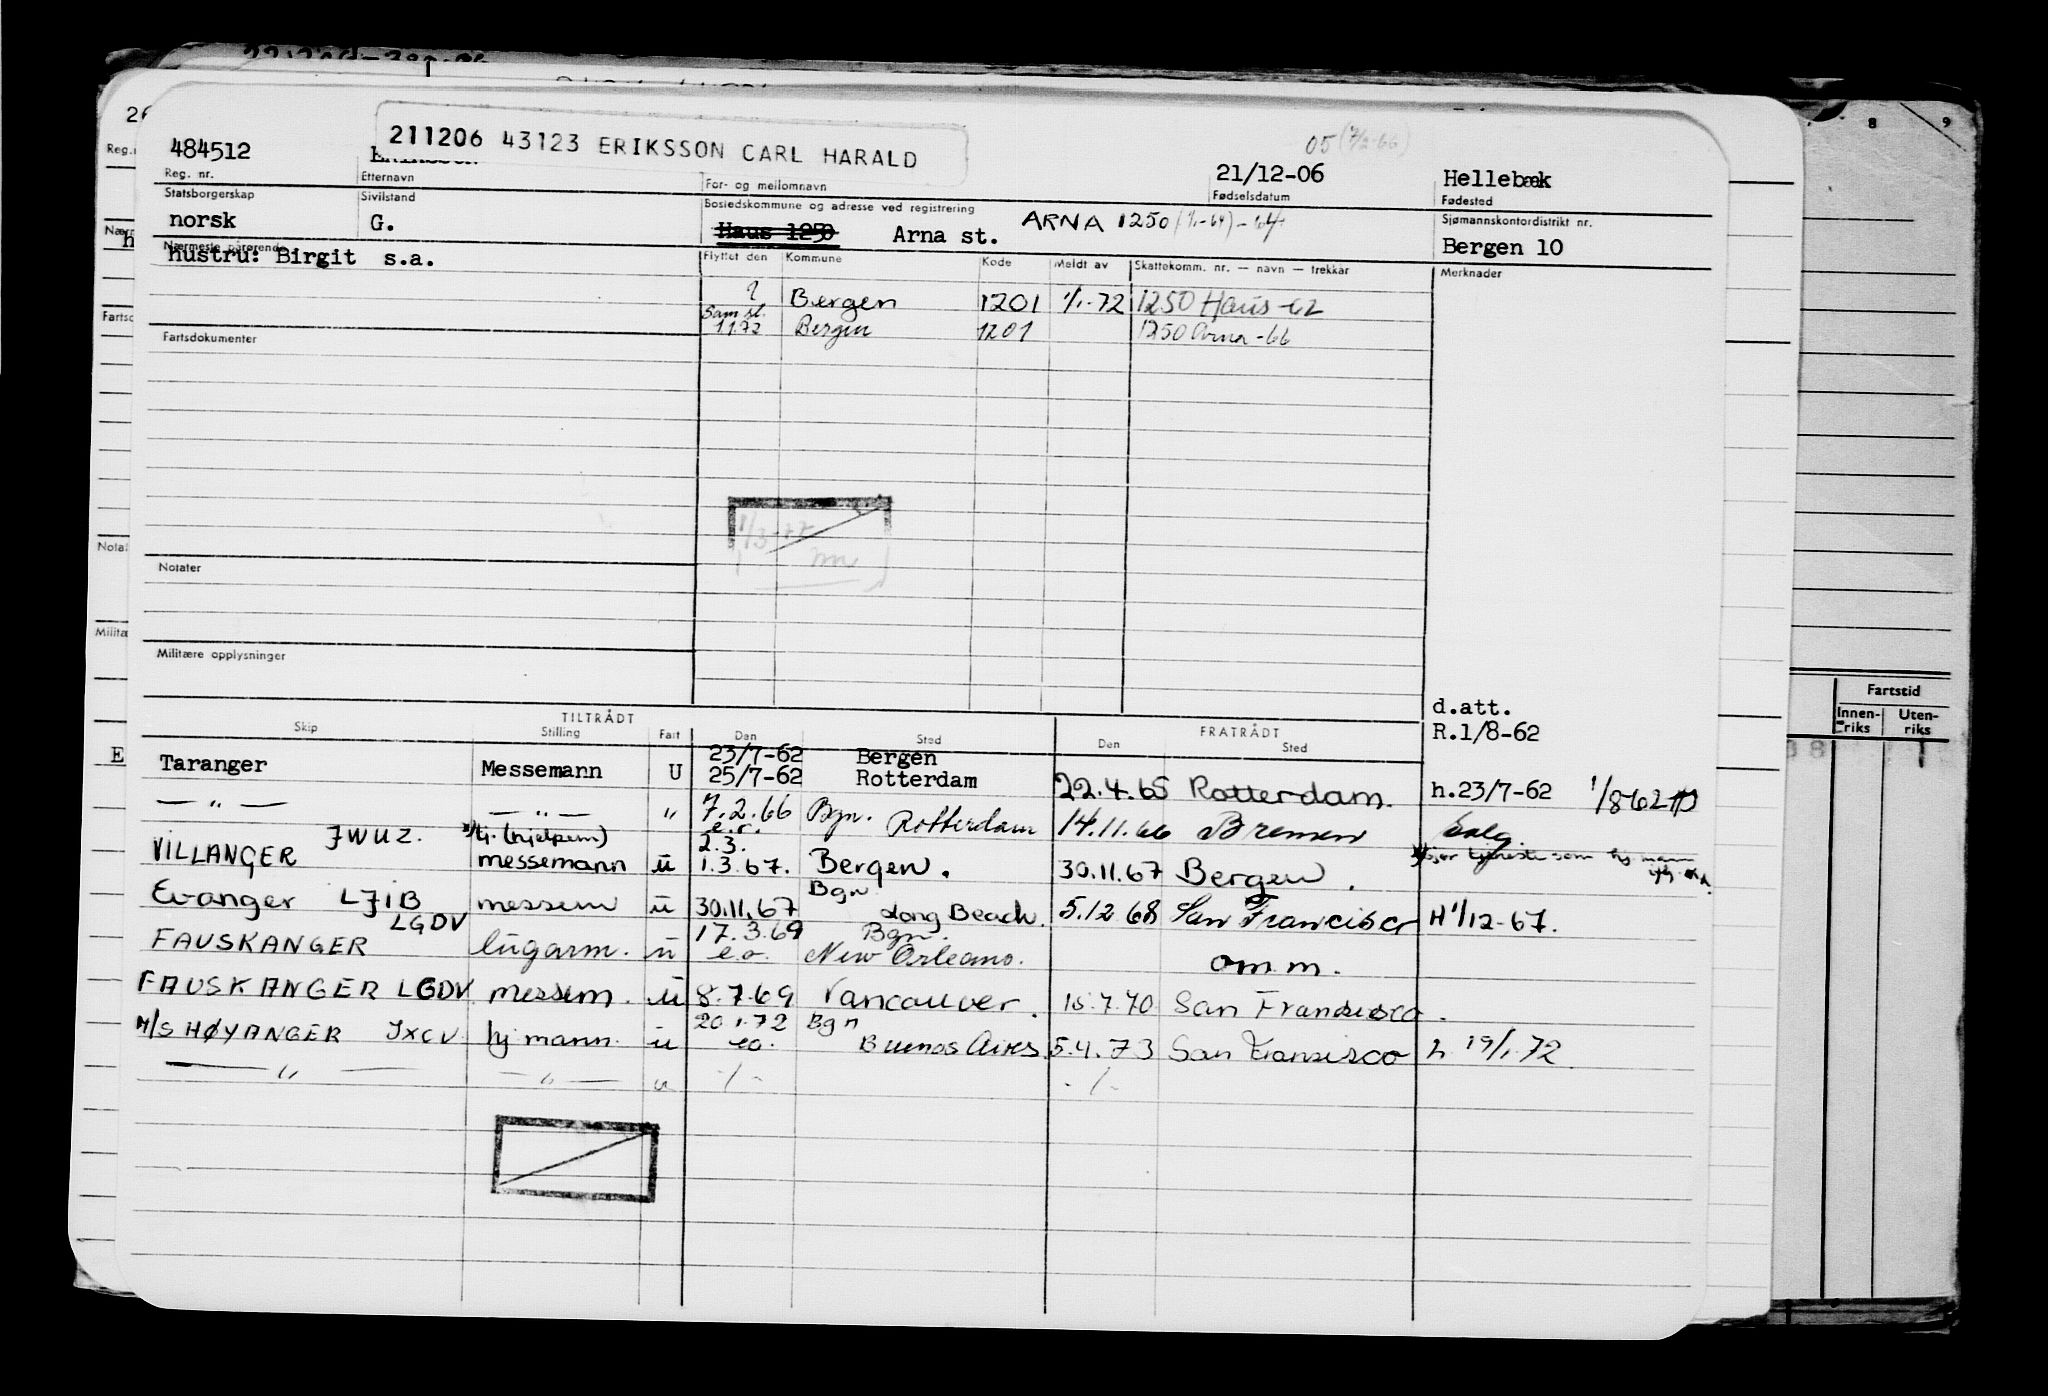 211206 43123 ERIKSSON CARL HARALD
05 (7/2-66)
484512
21/12-06
Hellebæk
Reg. nr.
Etternavn
For- og mellomnavn
Fødselsdatum
Fødested
Statsborgerskap
Sivilstand
Bostedskommune og adresse ved registrering
Sjømannskontordistrikt nr.
norsk
G.
Haus 1250
Arna st.
ARNA 1250 (1/1-64) - 64
Bergen 10
Nærmeste pårørende
hustru: Birgit s.a.
Flyttet den
Kommune
Kode
Meldt av
Skattekomm. nr. — navn — trekkår
Merknader
? Bergen 1201 1/1-72 1250 Haus -62
Sam st.
1172 Bergen 1201 1250 Arna -66
Fartsdokumenter
Notater
Militære opplysninger
d.att.
R.1/8-62
TILTRÅDT
FRATRÅDT
Skip
Stilling
Fart
Den
Sted
Den
Sted
23/7-62 Bergen
Taranger Messemann U 25/7-62 Rotterdam 22.4.65 Rotterdam. h.23/7-62 1/8-62
— " — — " — " 7.2.66 Bgn. Rotterdam 14.11.66 Bremen
e.r.
JWUZ. tj. (hjelpem) 2.3.
VILLANGER messemann u 1.3.67. Bergen. 30.11.67 Bergen.
Evanger LJIB messem u 30.11.67 Bgn Long Beach. 5.12 68 San Francisco H 1/12-67.
LGDV 17.3.69 Bgn.
FAUSKANGER lugarm. u e.o. New Orleans. om.m.
FAUSKANGER LGDV messem. u 8.7.69 Vancouver. 15.7.70 San Fransisco.
20 1.72 Bgn
M/S HØYANGER JXCV hj mann. u eo. Buenos Aires 5.4.73 San Fransisco h 19/1.72
— " — — " — u -/- -/-
Fartstid
Innen-
riks
Uten-
riks
8
9